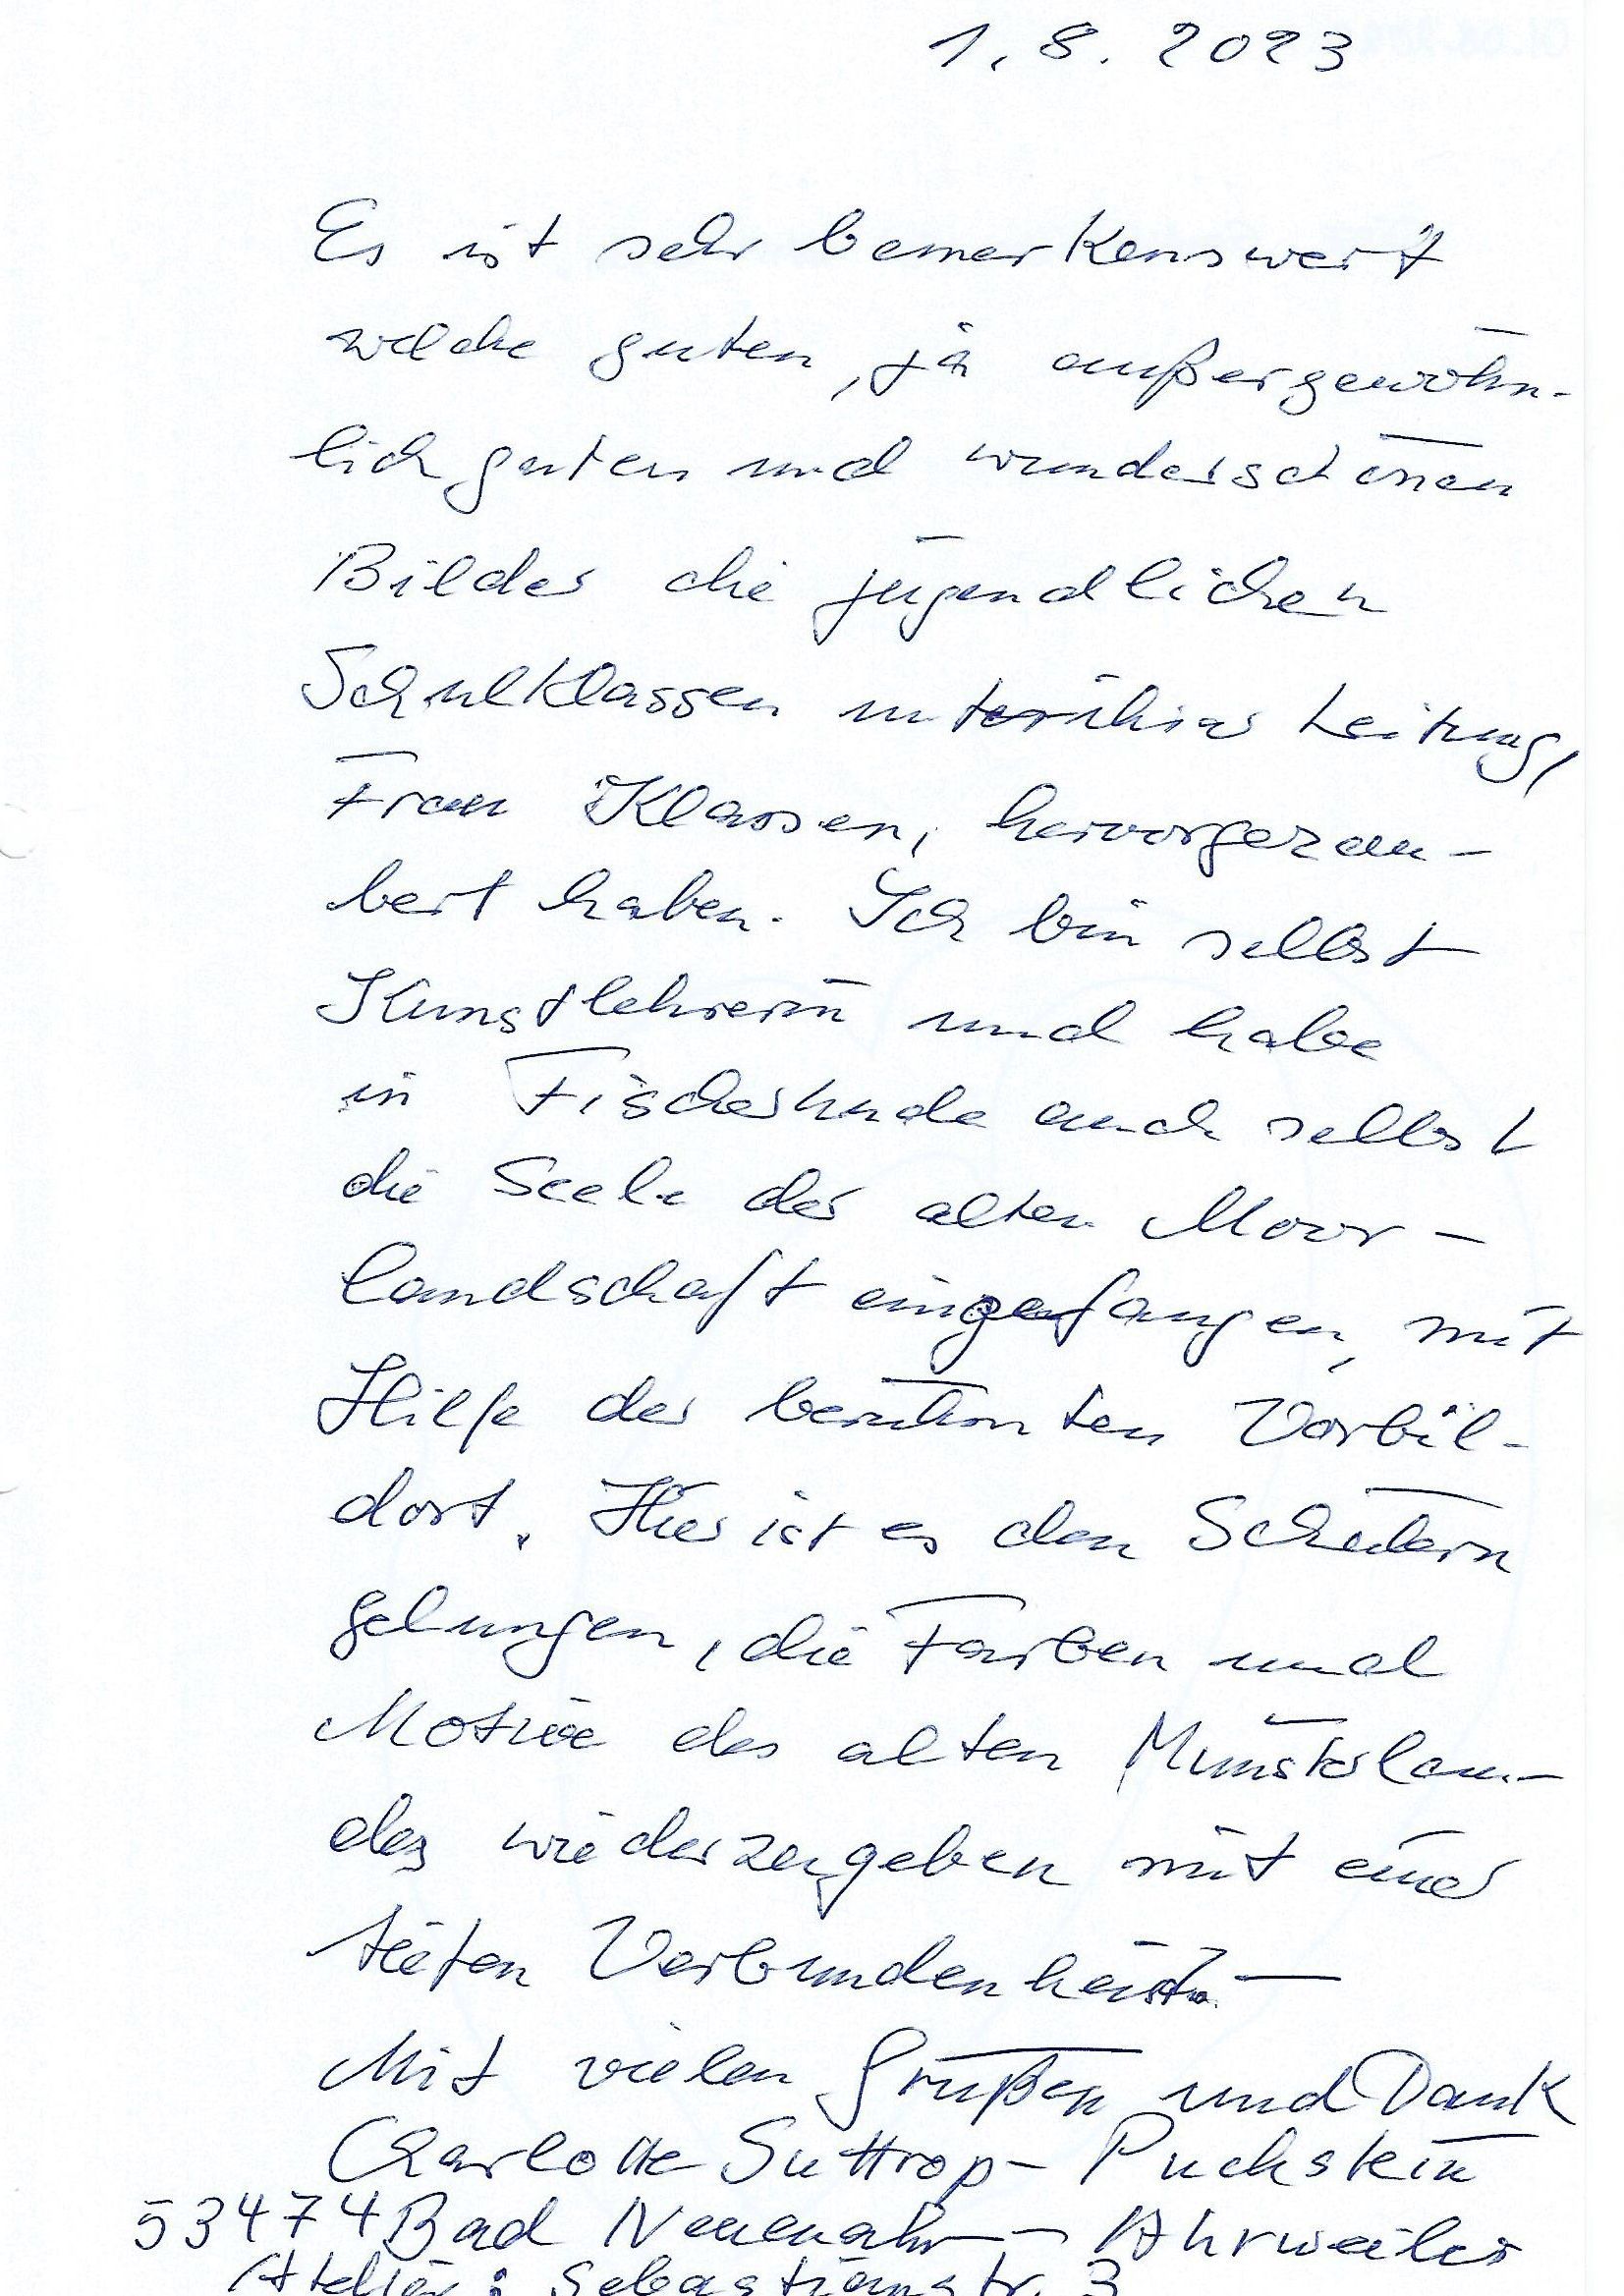 1. 8. 2023
Es ist sehr bemerkenswert
welche guten, ja außergewöhn-
lich guten und wunderschönen
Bilder die jugendlichen
Schulklassen unter ihrer Leitung,
Frau Klassen, hervorgezau-
bert haben. Ich bin selbst
Kunstlehrerin und habe
in Fischerhude auch selbst
die Seele der alten Moor-
landschaft eingefangen, mit
Hilfe der berühmten Vorbil-
dort. Hier ist es den Schülern
gelungen, die Farben und
Motive des alten Münsterlan-
des wiederzugeben mit einer
tiefen Verbundenheit. —
Mit vielen Grüßen und Dank
Charlotte Suttrop-Puchstein
53474 Bad Neuenahr - Ahrweiler
Atelier: Sebastianstr. 3